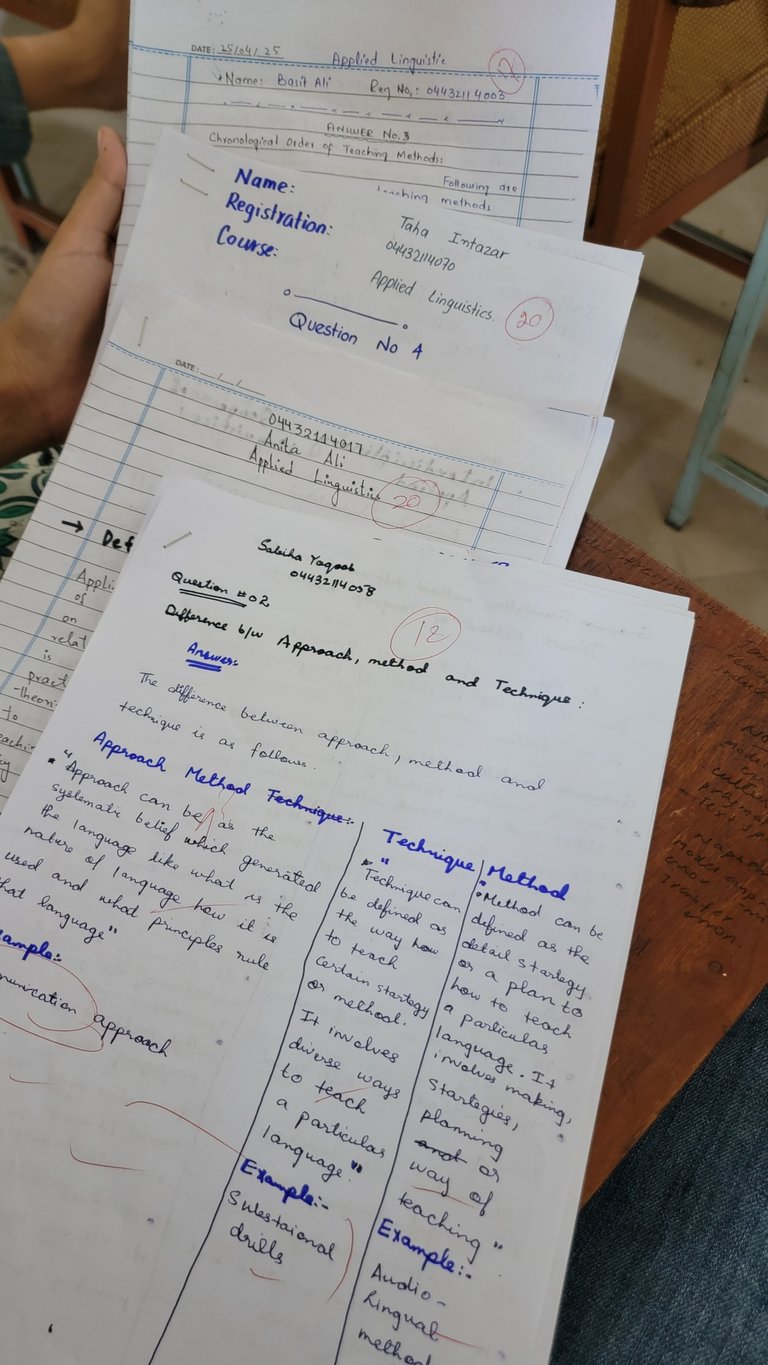 DATE: 25/04/25
Applied Linguistic
Name: Basit Ali Reg No,: 04432114003
ANSWER No.3
Chronological Order of Teaching Methods:
Following are
teaching methods
Name: Taha Intazar
Registration: 04432114070
Course: Applied Linguistics.
20
Question No 4
DATE: _/_/_
04432114017
Anita Ali
Applied Linguistics
20
→ Def
Appli
of
on
relat
is
pract
theor
to
eachi
Sabiha Yaqoob
04432114058
Question #02
12
Difference b/w Approach, method and Technique:
Answer:
The difference between approach, method and
technique is as follows.
Approach Method Technique:-
"Approach can be as the
systematic belief which generated
the language like what is the
nature of language how it is
used and what principles rule
that language"
ample:
munication approach
Technique
"Technique can
be defined as
the way how
to teach
Certain startegy
or method.
It involves
diverse ways
to teach
a particulas
language."
Example:-
Substaional
drills
Method
"Method can be
defined as the
detail startegy
or a plan to
how to teach
a particulas
language. It
involves making,
Startegies,
planning
and or
way of
teaching"
Example:-
Audio-
lingual
method